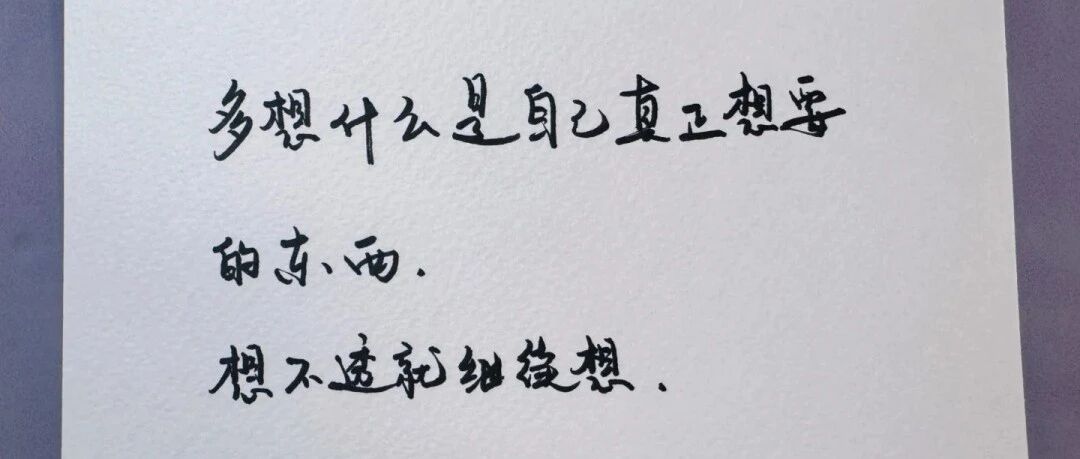 多想什么是自己真正想要
的东西.
想不透就继续想.